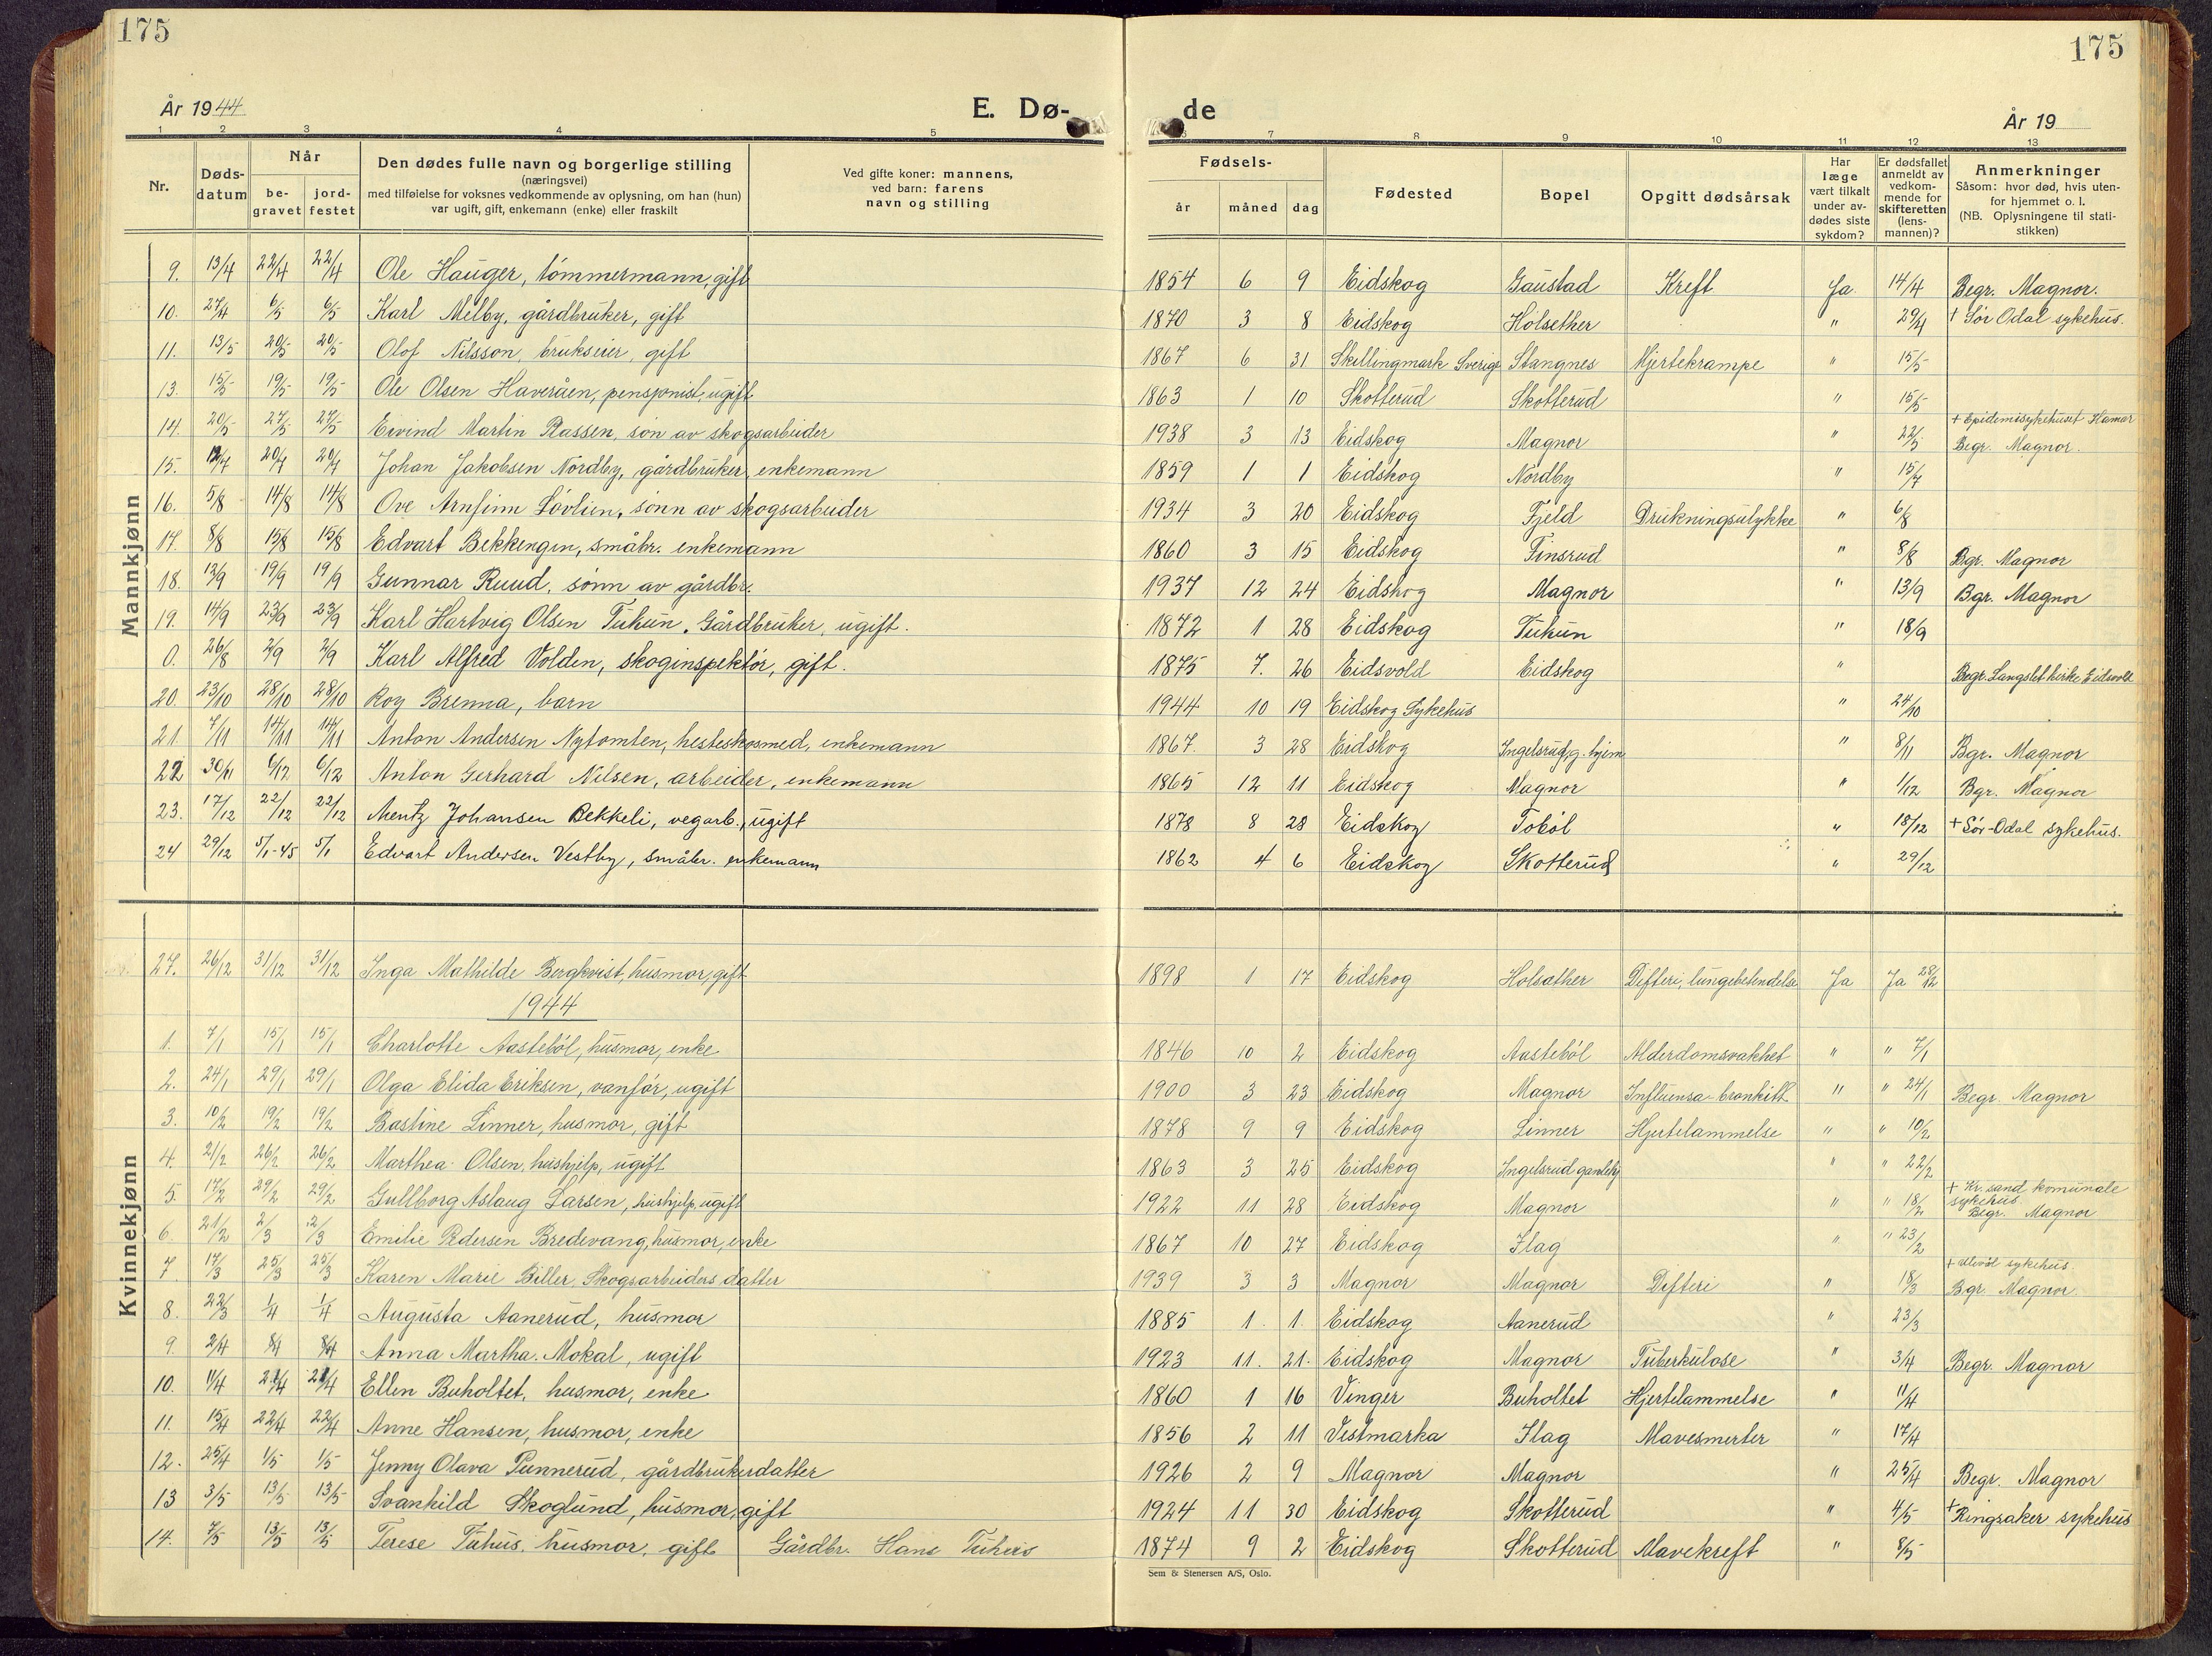 175
175
År 1944
E. Dø-
de
År 19
1 2 3 4 5 6 7 8 9 10 11 12 13
Nr.
Døds-
datum
Når
be-
gravet
jord-
festet
Den dødes fulle navn og borgerlige stilling
(næringsvei)
med tilføielse for voksnes vedkommende av oplysning, om han (hun)
var ugift, gift, enkemann (enke) eller fraskilt
Ved gifte koner: mannens,
ved barn: farens
navn og stilling
Fødsels-
år måned dag
Fødested
Bopel
Opgitt dødsårsak
Har
læge
vært tilkalt
under av-
dødes siste
sykdom?
Er dødsfallet
anmeldt av
vedkom-
mende for
skifteretten
(lens-
mannen)?
Anmerkninger
Såsom: hvor død, hvis uten-
for hjemmet o. l.
(NB. Oplysningene til stati-
stikken)
Mannkjønn
9. 13/4 22/4 22/4 Ole Hauger, tømmermann, gift 1854 6 9 Eidskog Gaustad Kreft Ja 14/4 Begr. Magnor.
10. 27/4 6/5 6/5 Karl Melby, gårdbruker, gift 1870 3 8 Eidskog Holsether " 29/4 + Sør Odal sykehus.
11. 13/5 20/5 20/5 Olof Nilsson, brukseier, gift 1867 6 31 Skillingmark Sverige Stangnes Hjertekrampe " 15/5
13. 15/5 19/5 19/5 Ole Olsen Haveråen, pensjonist, ugift 1863 1 10 Skotterud Skotterud " 15/5
14. 20/5 27/5 27/5 Eivind Martin Plassen, søn av skogsarbeider 1938 3 13 Eidskog Magnor " 22/5 + Epidemisykehuset Hamar
Begr. Magnor.
15. 12/7 20/7 20/7 Johan Jakobsen Nordby, gårdbruker, enkemann 1859 1 1 Eidskog Nordby " 15/7
16. 5/8 14/8 14/8 Ove Arnfinn Løvlien, sønn av skogsarbeider 1934 3 20 Eidskog Fjeld Drukningsulykke " 6/8
17. 8/8 15/8 15/8 Edvart Bekkengen, småbr. enkemann 1860 3 15 Eidskog Finsrud " 8/8 Bgr. Magnor
18. 13/9 19/9 19/9 Gunnar Ruud, sønn av gårdbr. 1937 12 24 Eidskog Magnor " 13/9 Bgr. Magnor
19. 14/9 23/9 23/9 Karl Hartvig Olsen Tukun, Gårdbruker, ugift. 1872 1 28 Eidskog Tukun " 18/9
0. 26/8 2/9 2/9 Karl Alfred Volden, skoginspektør, gift. 1875 7. 26 Eidsvold Eidskog " Begr. Langset kirke Eidsvold
20. 23/10 28/10 28/10 Roy Brenna, barn 1944 10 19 Eidskog Sykehus " 24/10
21. 7/11 14/11 14/11 Anton Andersen Nytomten, hesteskosmed, enkemann 1867. 3 28 Eidskog Ingelsrud g.hjem " 8/11 Bgr. Magnor
22 30/11 6/12 6/12 Anton Gerhard Nilsen, arbeider, enkemann 1865 12 11 Eidskog Magnor " 1/12 Bgr. Magnor
23. 17/12 22/12 22/12 Mentz Johansen Bekkeli, vegarb., ugift 1878 8 28 Eidskog Tobøl " 18/12 + Sør-Odal sykehus.
24 29/12 5/1-45 5/1 Edvart Andersen Vestby, småbr. enkemann 1862 4 6 Eidskog Skotterud " 29/12
Kvinnekjønn
27. 26/12 31/12 31/12 Inga Mathilde Bergkvist, husmor, gift 1898 1 17 Eidskog Holsæther Difteri, lungebetendelse Ja Ja 28/12
1944
1. 7/1 15/1 15/1 Charlotte Aastebøl, husmor, enke 1846 10 2 Eidskog Aastebøl Alderdomsvakhet " " 7/1
2. 24/1 29/1 29/1 Olga Elida Eriksen, vanfør, ugift 1900 3 23 Eidskog Magnor Influensa-bronkitt " " 24/1 Begr. Magnor
3. 10/2 19/2 19/2 Bastine Linner, husmor, gift 1878 9 9 Eidskog Linner Hjertelammelse " " 10/2
4. 21/2 26/2 26/2 Marthea Olsen, hushjelp, ugift 1863 3 25 Eidskog Ingelsrud gamlehj " " 22/2
5 17/2 29/2 29/2 Gullborg Aslaug Larsen, hushjelp, ugift 1922 11 28 Eidskog Magnor " " 18/2 + Kr. sand komunale
sykehus
Begr. Magnor
6. 21/2 2/3 2/3 Emilie Pedersen Bredevang, husmor, enke 1867 10 27 Eidskog Flag " " 23/2
7 17/3 25/3 25/3 Karen Marie Biller. Skogsarbeiders datter 1939 3 3 Magnor Magnor Difteri " 18/3 + Ulevål sykehus.
Bgr. Magnor.
8. 22/3 1/4 1/4 Augusta Aanerud, husmor 1885 1. 1. Eidskog Aanerud " 23/3
9. 2/4 8/4 8/4 Anna Martha Mokal, ugift 1923 11. 21. Eidskog Magnor Tuberkulose " 3/4 Begr. Magnor
10. 11/4 21/4 21/4 Ellen Buholtet, husmor, enke 1860 1 16 Vinger Buholtet Hjertelammelse " 11/4
11. 15/4 22/4 22/4 Anne Hansen, husmor, enke 1856 2 11 Vestmarka Flag Mavesmerter " 17/4
12. 25/4 1/5 1/5 Jenny Olava Punnerud, gårdbrukerdatter 1926 2 9 Magnor Magnor " 25/4 Begr. Magnor
13 3/5 13/5 13/5 Svanhild Skoglund, husmor, gift 1924 11 30 Eidskog Skotterud " 4/5 + Ringsaker sykehus
14. 7/5 13/5 13/5 Terese Tuhus, husmor, gift Gårdbr. Hans Tuhus 1874 9 2 Eidskog Skotterud Mavekreft " 8/5
Sem & Stenersen A/S, Oslo.